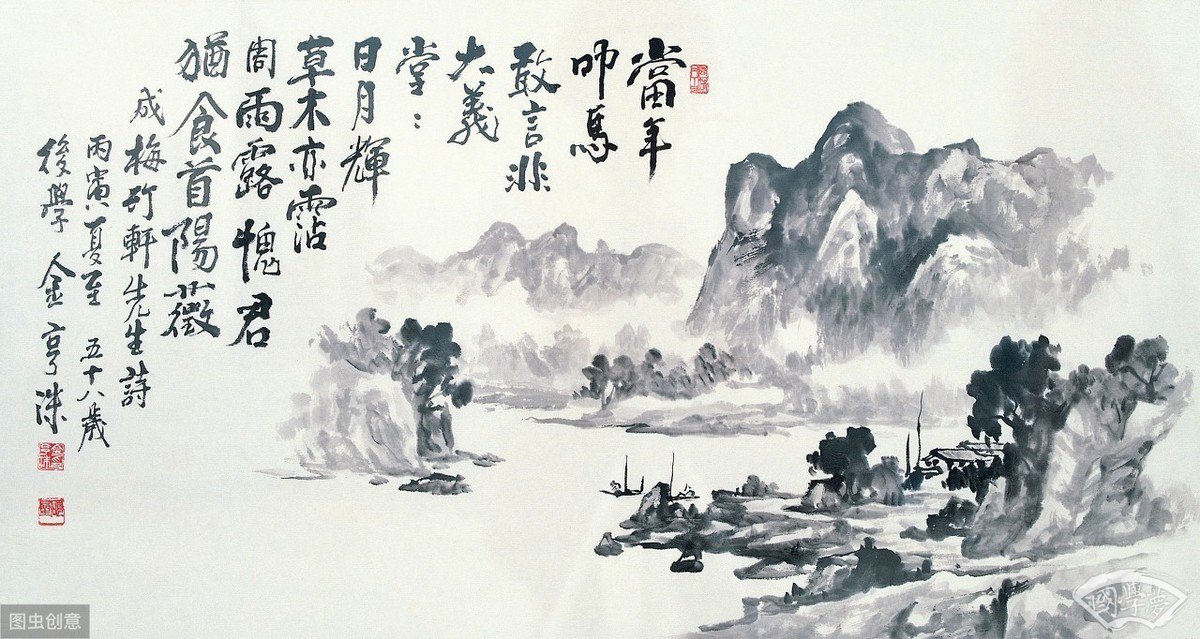 當年
叩馬
敢言非
大義
堂〻
日月輝
草木亦霑
周雨露愧君
猶食首陽薇
成梅竹軒先生詩
丙寅夏至 五十八歲
後學 金亨洙
图虫创意
國學夢